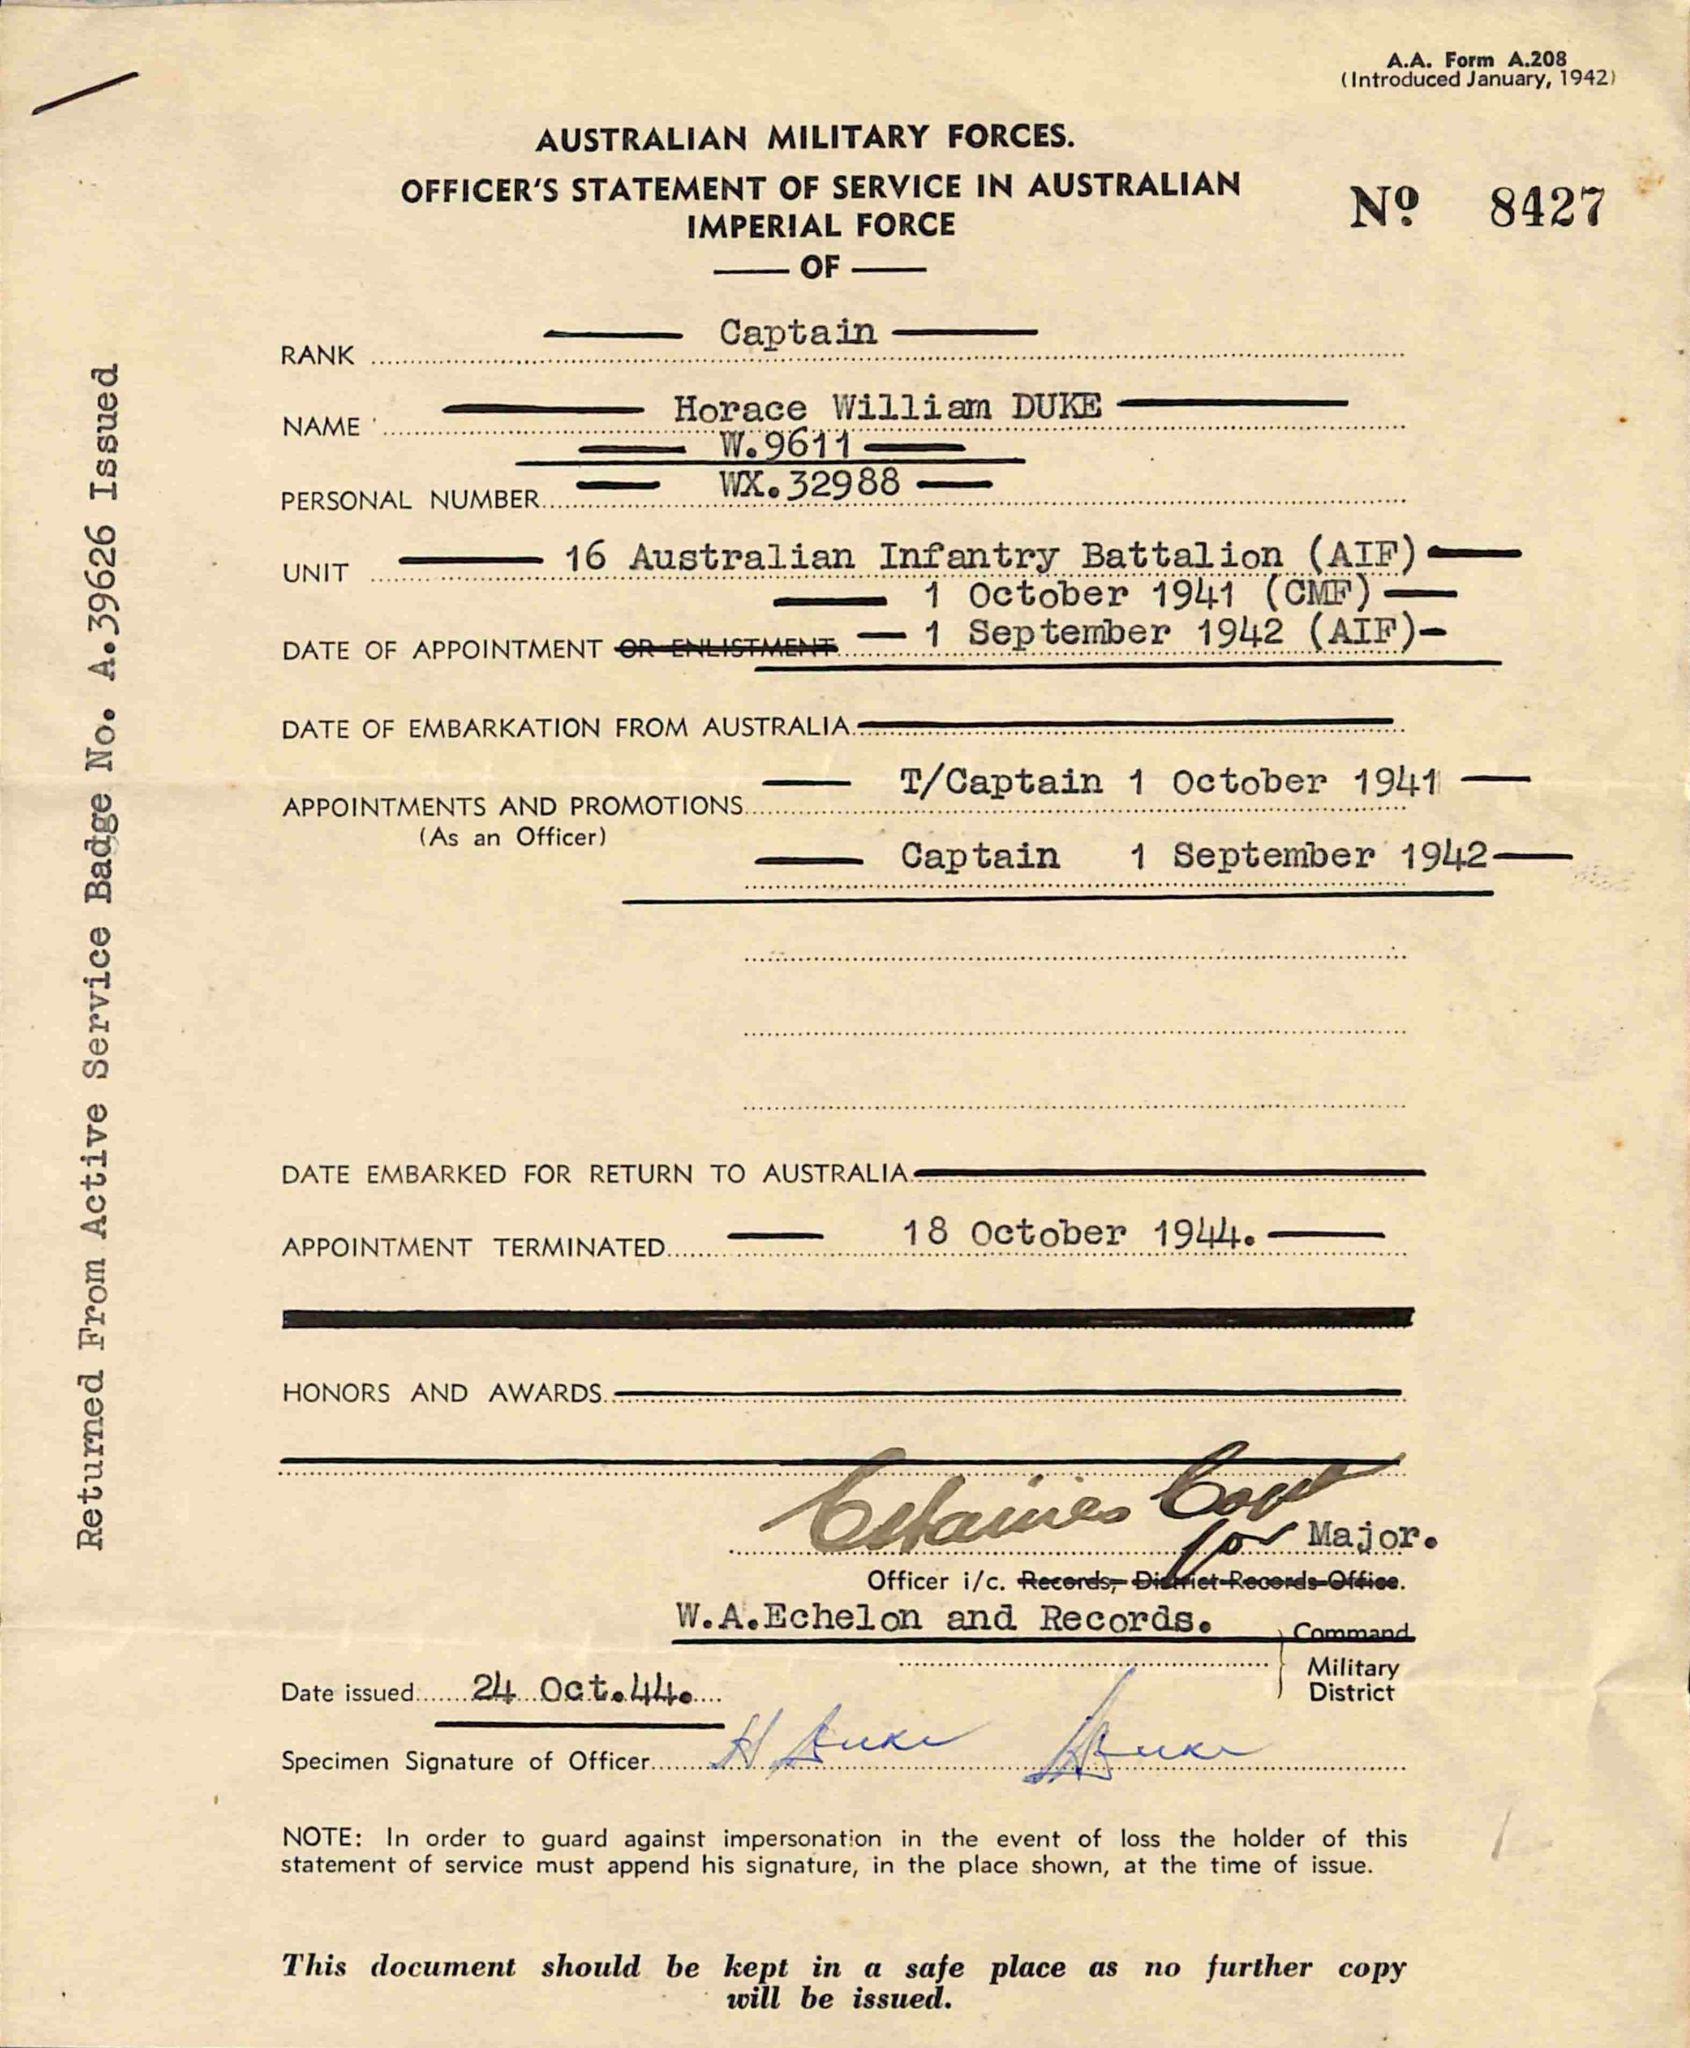 A.A. Form A.208
(Introduced January, 1942)
AUSTRALIAN MILITARY FORCES.
OFFICER'S STATEMENT OF SERVICE IN AUSTRALIAN
IMPERIAL FORCE
OF
No. 8427
RANK Captain
NAME Horace William DUKE
W.9611
PERSONAL NUMBER WX.32988
UNIT 16 Australian Infantry Battalion (AIF)
1 October 1941 (CMF)
DATE OF APPOINTMENT OR ENLISTMENT 1 September 1942 (AIF)
DATE OF EMBARKATION FROM AUSTRALIA
APPOINTMENTS AND PROMOTIONS T/Captain 1 October 1941
(As an Officer)
Captain 1 September 1942
DATE EMBARKED FOR RETURN TO AUSTRALIA
APPOINTMENT TERMINATED 18 October 1944.
HONORS AND AWARDS
for Major.
Officer i/c. Records, District Records Office.
W.A.Echelon and Records.
Command
Military
District
Date issued 24 Oct.44.
Specimen Signature of Officer H Duke H Duke
NOTE: In order to guard against impersonation in the event of loss the holder of this
statement of service must append his signature, in the place shown, at the time of issue.
This document should be kept in a safe place as no further copy
will be issued.
Returned From Active Service Badge No. A.39626 Issued